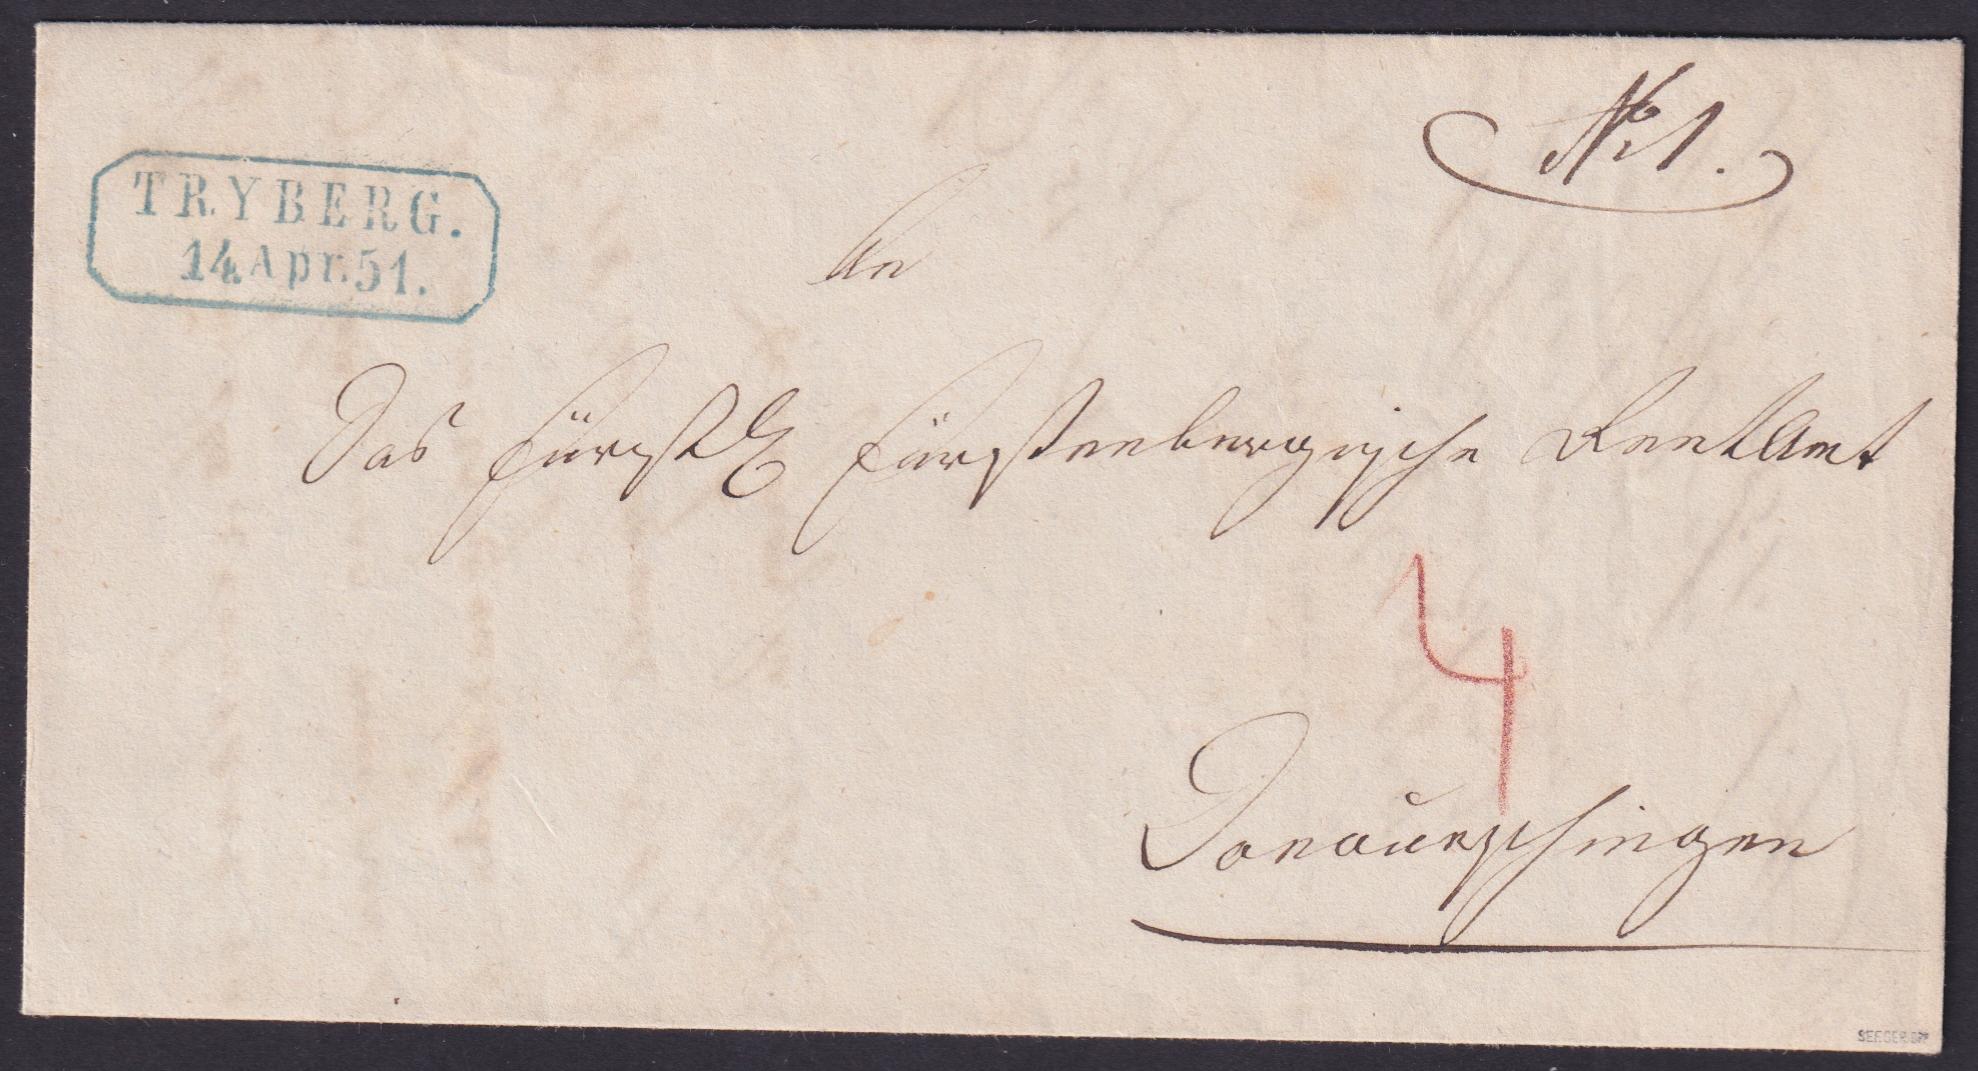 TRYBERG.
14 Apr. 51.
No 1.
An
Das Fürstl. Fürstenbergische RentAmt
4
Donaueschingen
SEEGER BPP